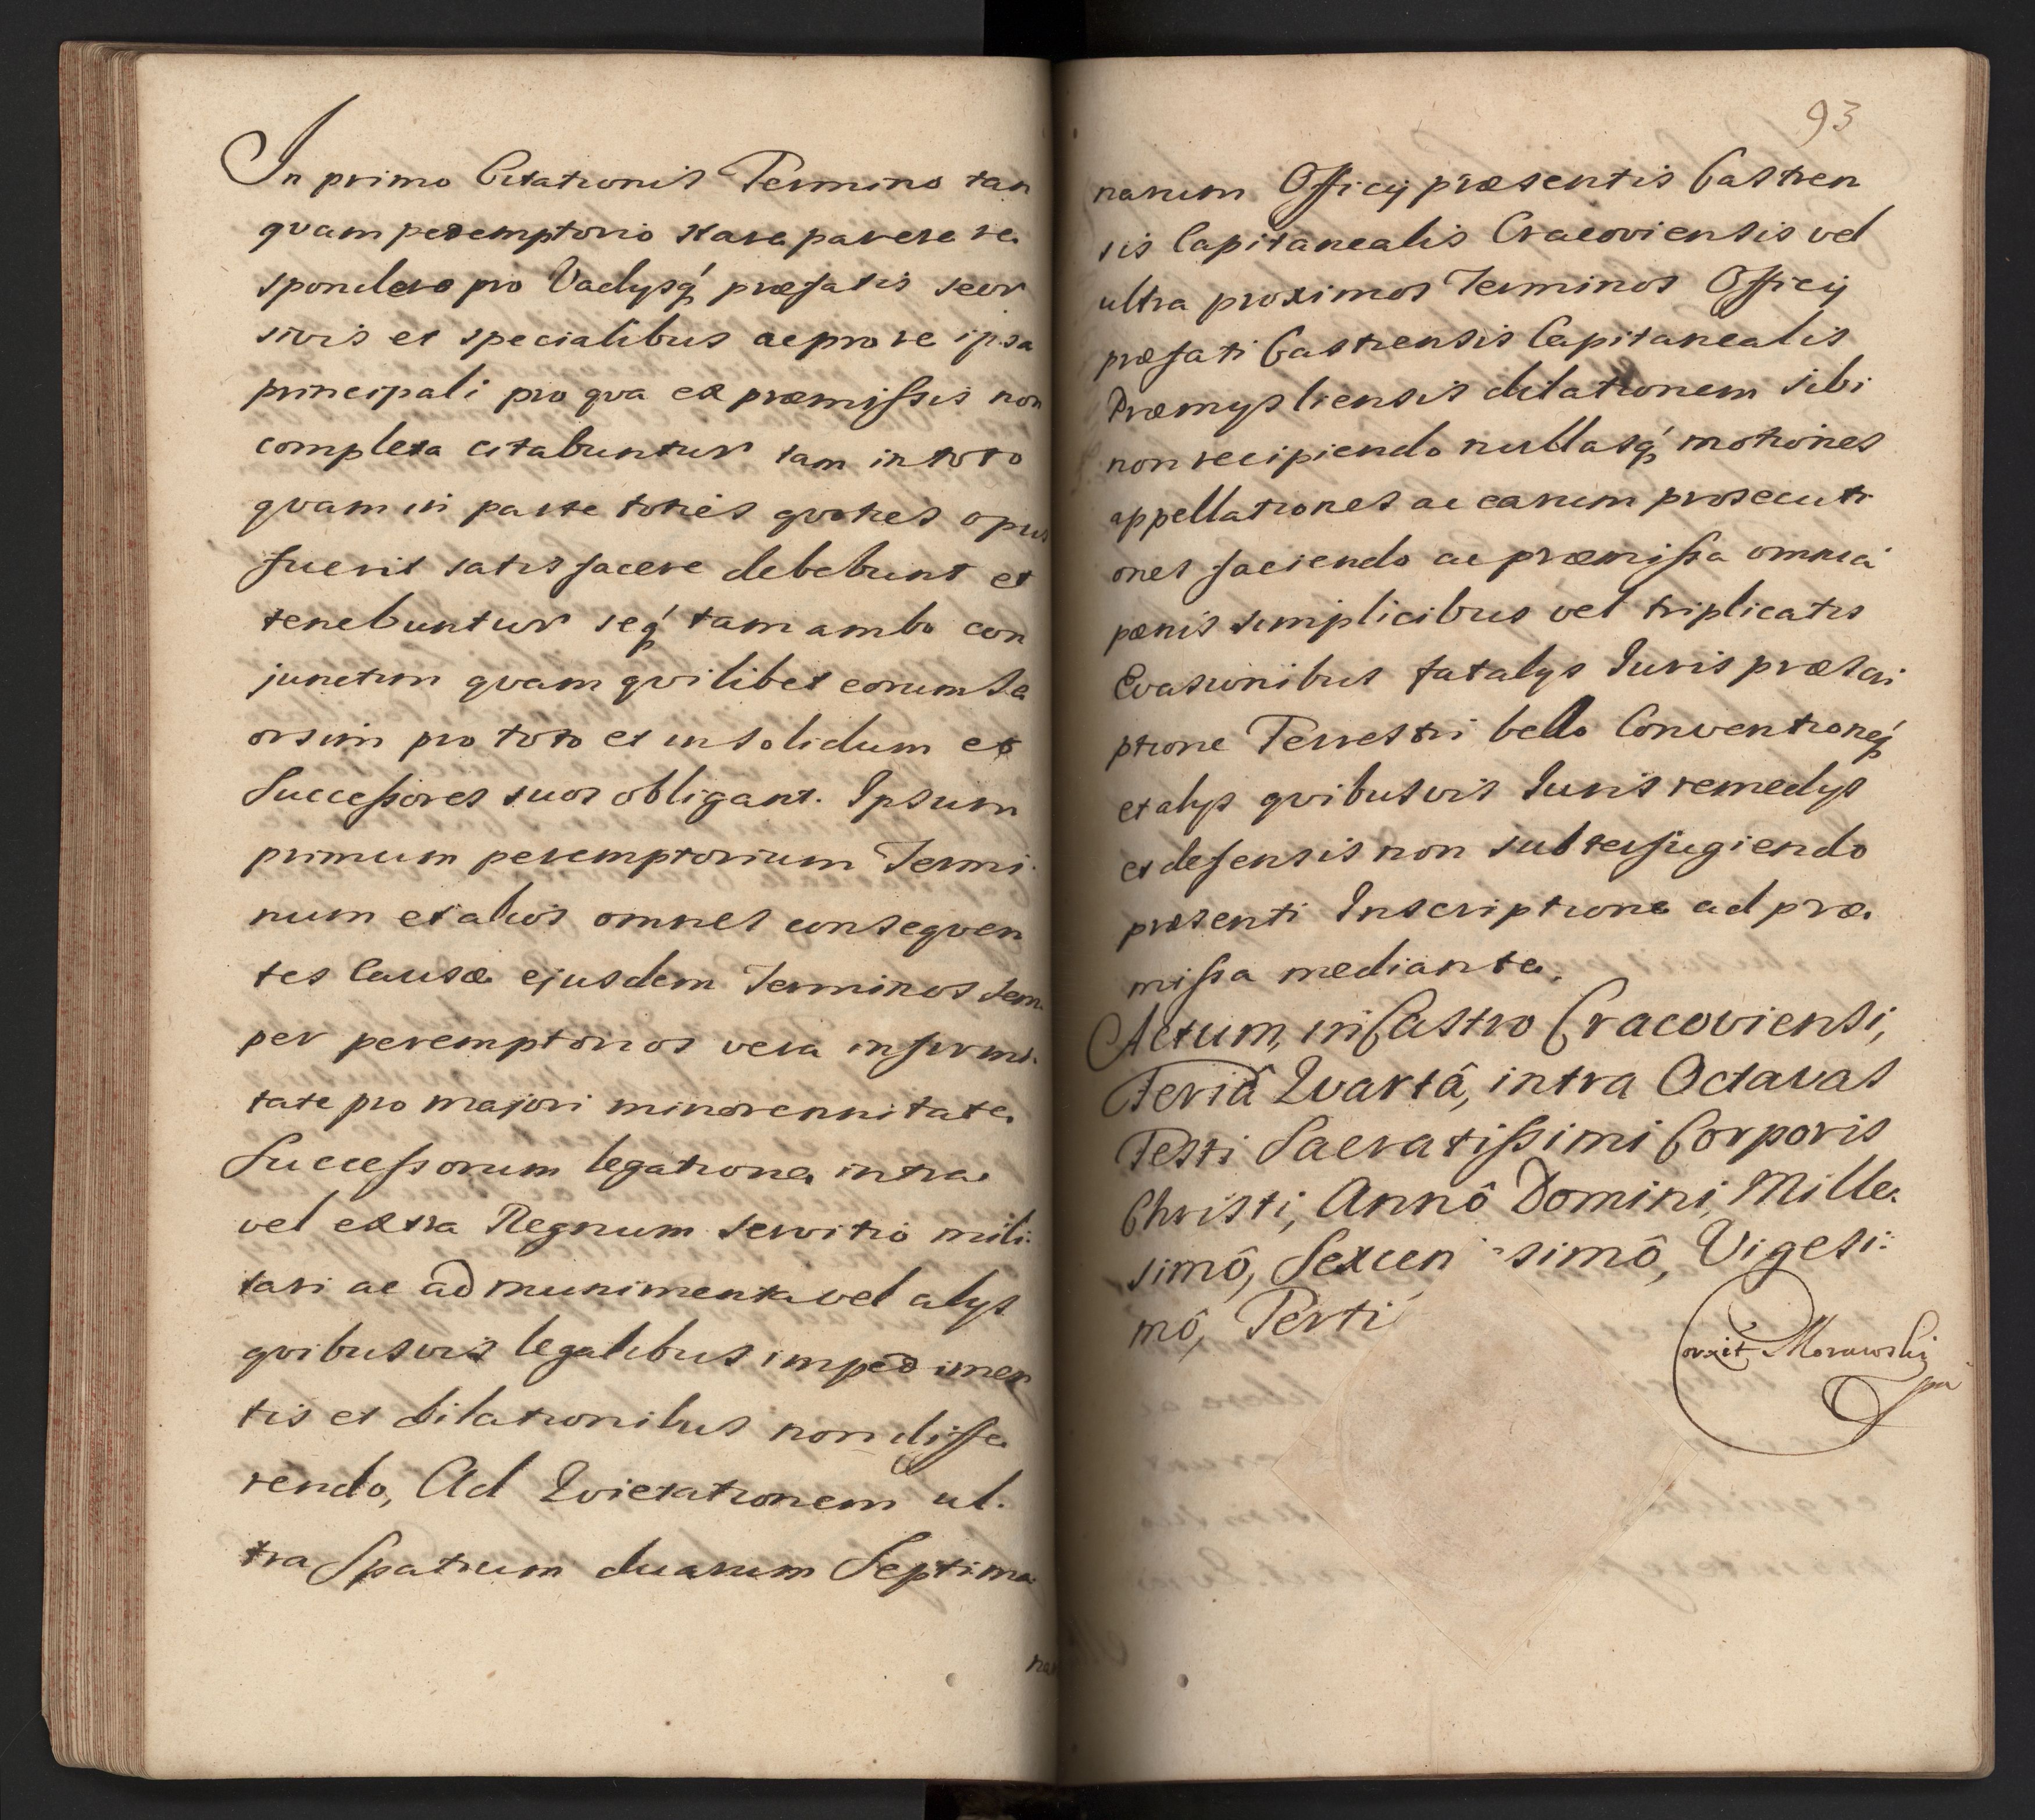 In primo Citationis Termino tan
quam peremptorio stare parere re
spondere pro Vadysq́ præfatis seor
sivis et specialibus ac pro re ipsa
principali pro qva ex præmissis non
completa citabuntur tam in toto
qvam in parte toties qvoties opus
fuerit satisfacere debebunt et
tenebuntur seq́ tam ambo con
junctim qvam qvilibet eorum se
orsim pro toto et in solidum et
Successores suos obligant. Ipsum
primum peremptorium Termi
num et alios omnes conseqven
tes Causæ ejusdem Terminos sem
per peremptorios vera infirmi
tate pro majori minorennitate
Successorum legatione intra
vel extra Regnum servitio mili
tari ac ad munimenta vel alys
qvibusvis legalibus impedimen
tis et dilationibus non diffe
rendo, Ad Qvietationem ul
tra Spatium duarum Septima
nar
93
narum Officy præsentis Castren
sis Capitanealis Cracoviensis vel
ultra proximos Terminos Officy
præfati Castrensis Capitanealis
Præmysliensis dilationem sibi
non recipiendo nullasq́ motiones
appellationes ac earum prosecuti
ones faciendo ac præmissa omnia
pænis simplicibus vel triplicatis
Evasionibus fatalys Iuris præscri
ptione Terrestri bello Conventioneq́
et alys qvibusvis Iuris remedys
et defensis non subterfugiendo
præsenti Inscriptione ad præ
missa mediante.
Actum, in Castro Cracoviensi,
Feriâ Qvartâ, intra Octavas
Festi Sacratissimi Corporis
Christi, Annô Domini, Mille
simô, Sexcen simô, Vigesi:
mô, Terti
Corxit Morawski
mp